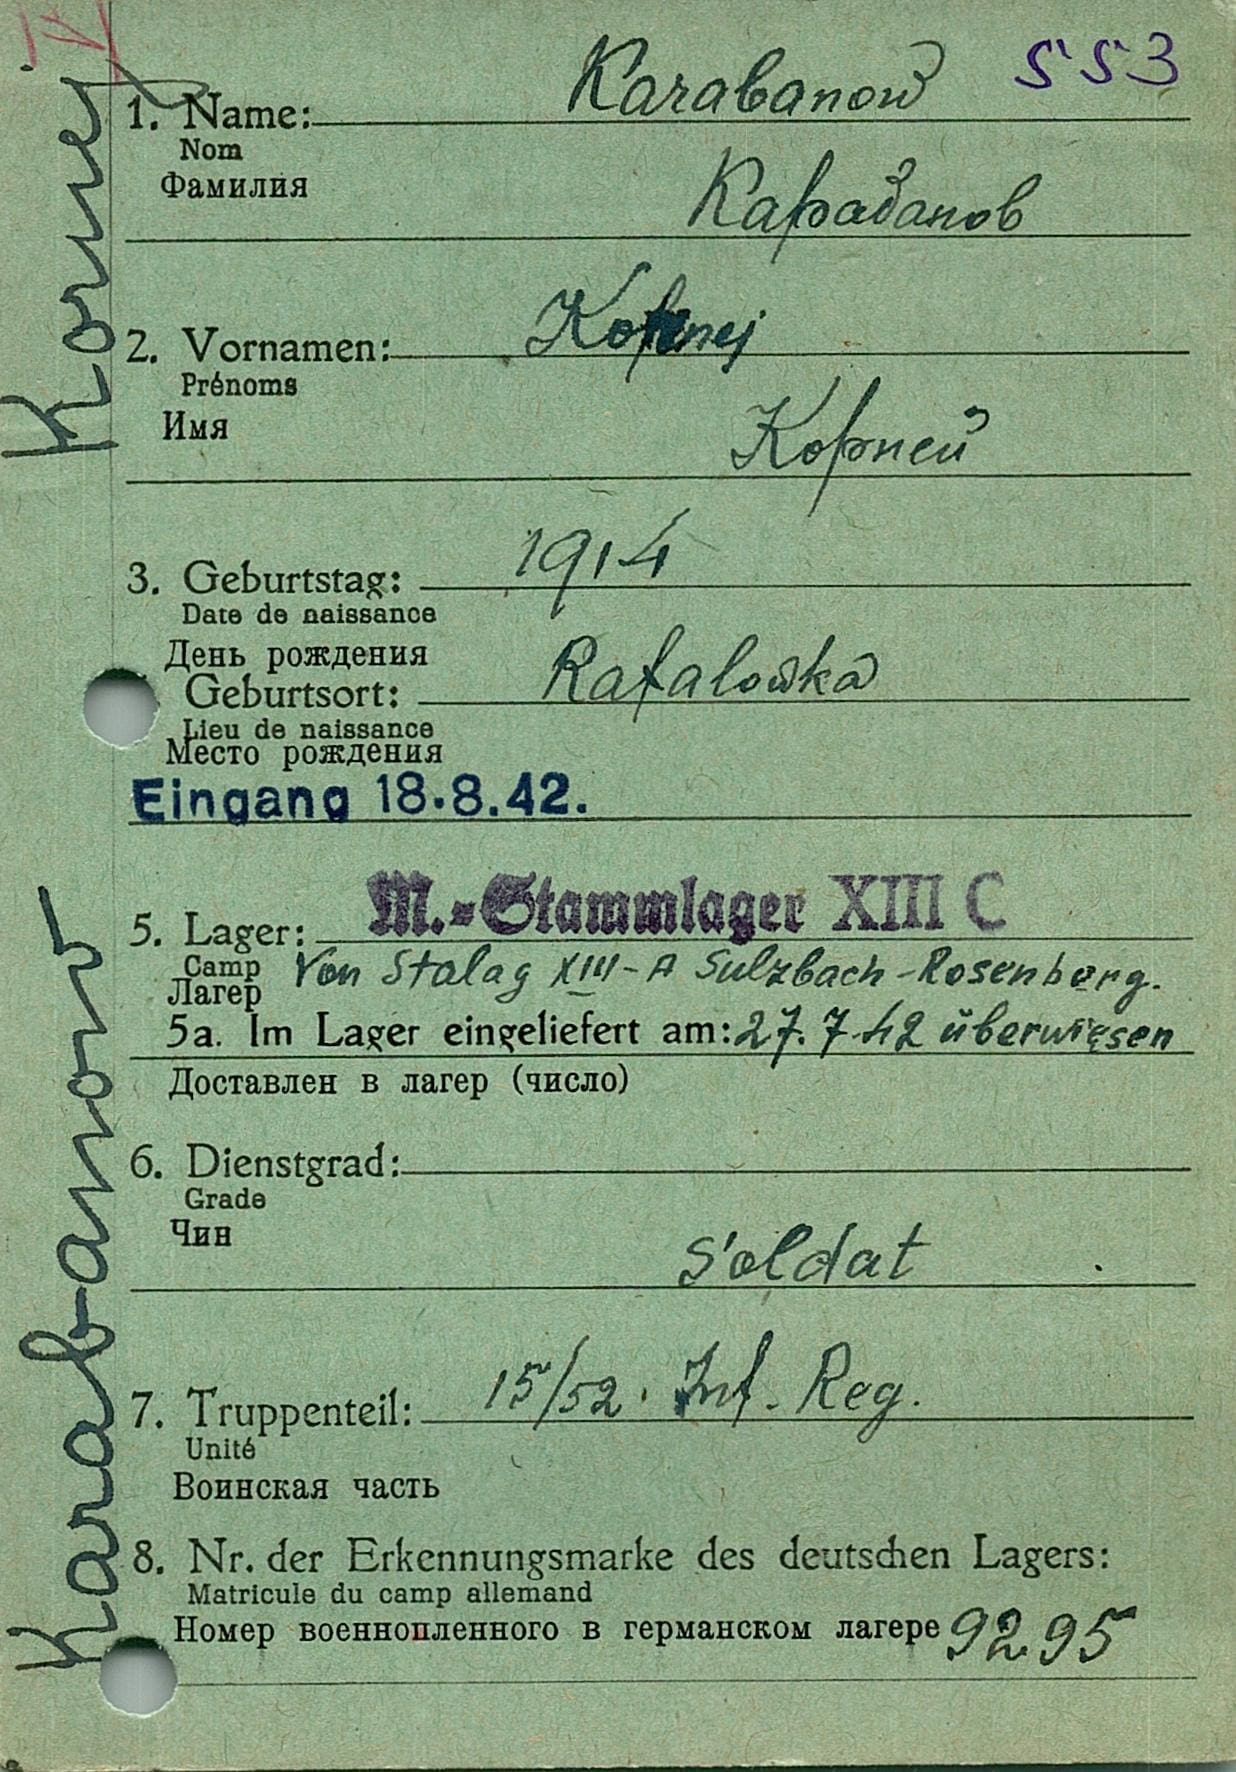 Karabanow 553
1. Name:
Nom
Фамилия
Карабанов
2. Vornamen: Kornej
Prénoms
Имя
Корней
3. Geburtstag: 1914
Date de naissance
День рождения
Geburtsort: Rafalowka
Lieu de naissance
Место рождения
Eingang 18.8.42.
5. Lager: M.-Stammlager XIII C
Camp Von Stalag XIII-A Sulzbach-Rosenberg.
Лагер
5a. Im Lager eingeliefert am: 27.7.42 überwiesen
Доставлен в лагер (число)
6. Dienstgrad:
Grade
Чин
Soldat
7. Truppenteil: 15/52. Inf. Reg.
Unité
Воинская часть
8. Nr. der Erkennungsmarke des deutschen Lagers:
Matricule du camp allemand
Номер военнопленного в германском лагере 9295
Karabanow Kornej